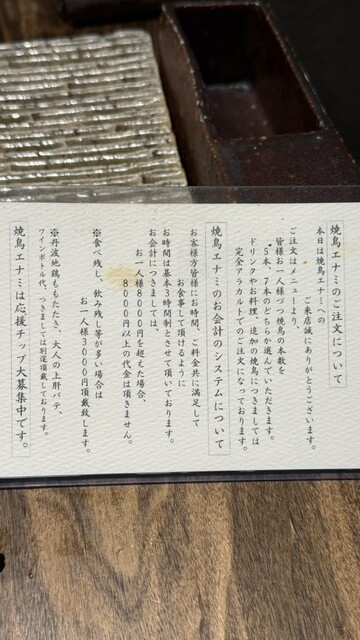 焼鳥エナミのご注文について
本日は焼鳥エナミへの
ご来店誠にありがとうございます。
ご注文はメニューより、
皆様お一人様づつ焼鳥の本数を
5本、7本のどちらか選んでいただきます。
ドリンクやお料理、追加の焼鳥につきましては
完全アラカルトでのご注文になっております。
焼鳥エナミのお会計のシステムについて
お客様方皆様にお時間、ご料金共に満足して
お食事して頂けるように
お時間は基本3時間制とさせて頂いております。
お会計につきましては、
お一人様8000円を超えた場合、
8000円以上の代金は頂きません。
※食べ残し、飲み残し等が多い場合は
お一人様3000円頂戴致します。
※丹波地鶏ももたたき、大人の上肝パテ、
ワインボトル代、つきましては別途頂戴しております。
焼鳥エナミは応援チップ大募集中です。